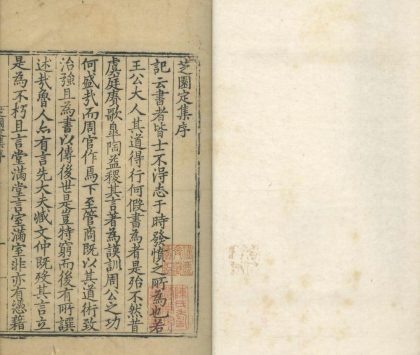 芝園定集序
記云書者皆士不得志于時發憤之所為也若
王公大人其道得行何假書為者是殆不然昔
虞庭賡歌臯陶益稷其言著為謨訓周公之功
何盛哉而周官作焉下至管商既以其道術致
治強且為書以傳後世是豈特窮而後有所譔
述哉魯人亦有言先大夫臧文仲既歿其言立
是為不朽且言堂滿堂言室滿室非亦有憑藉